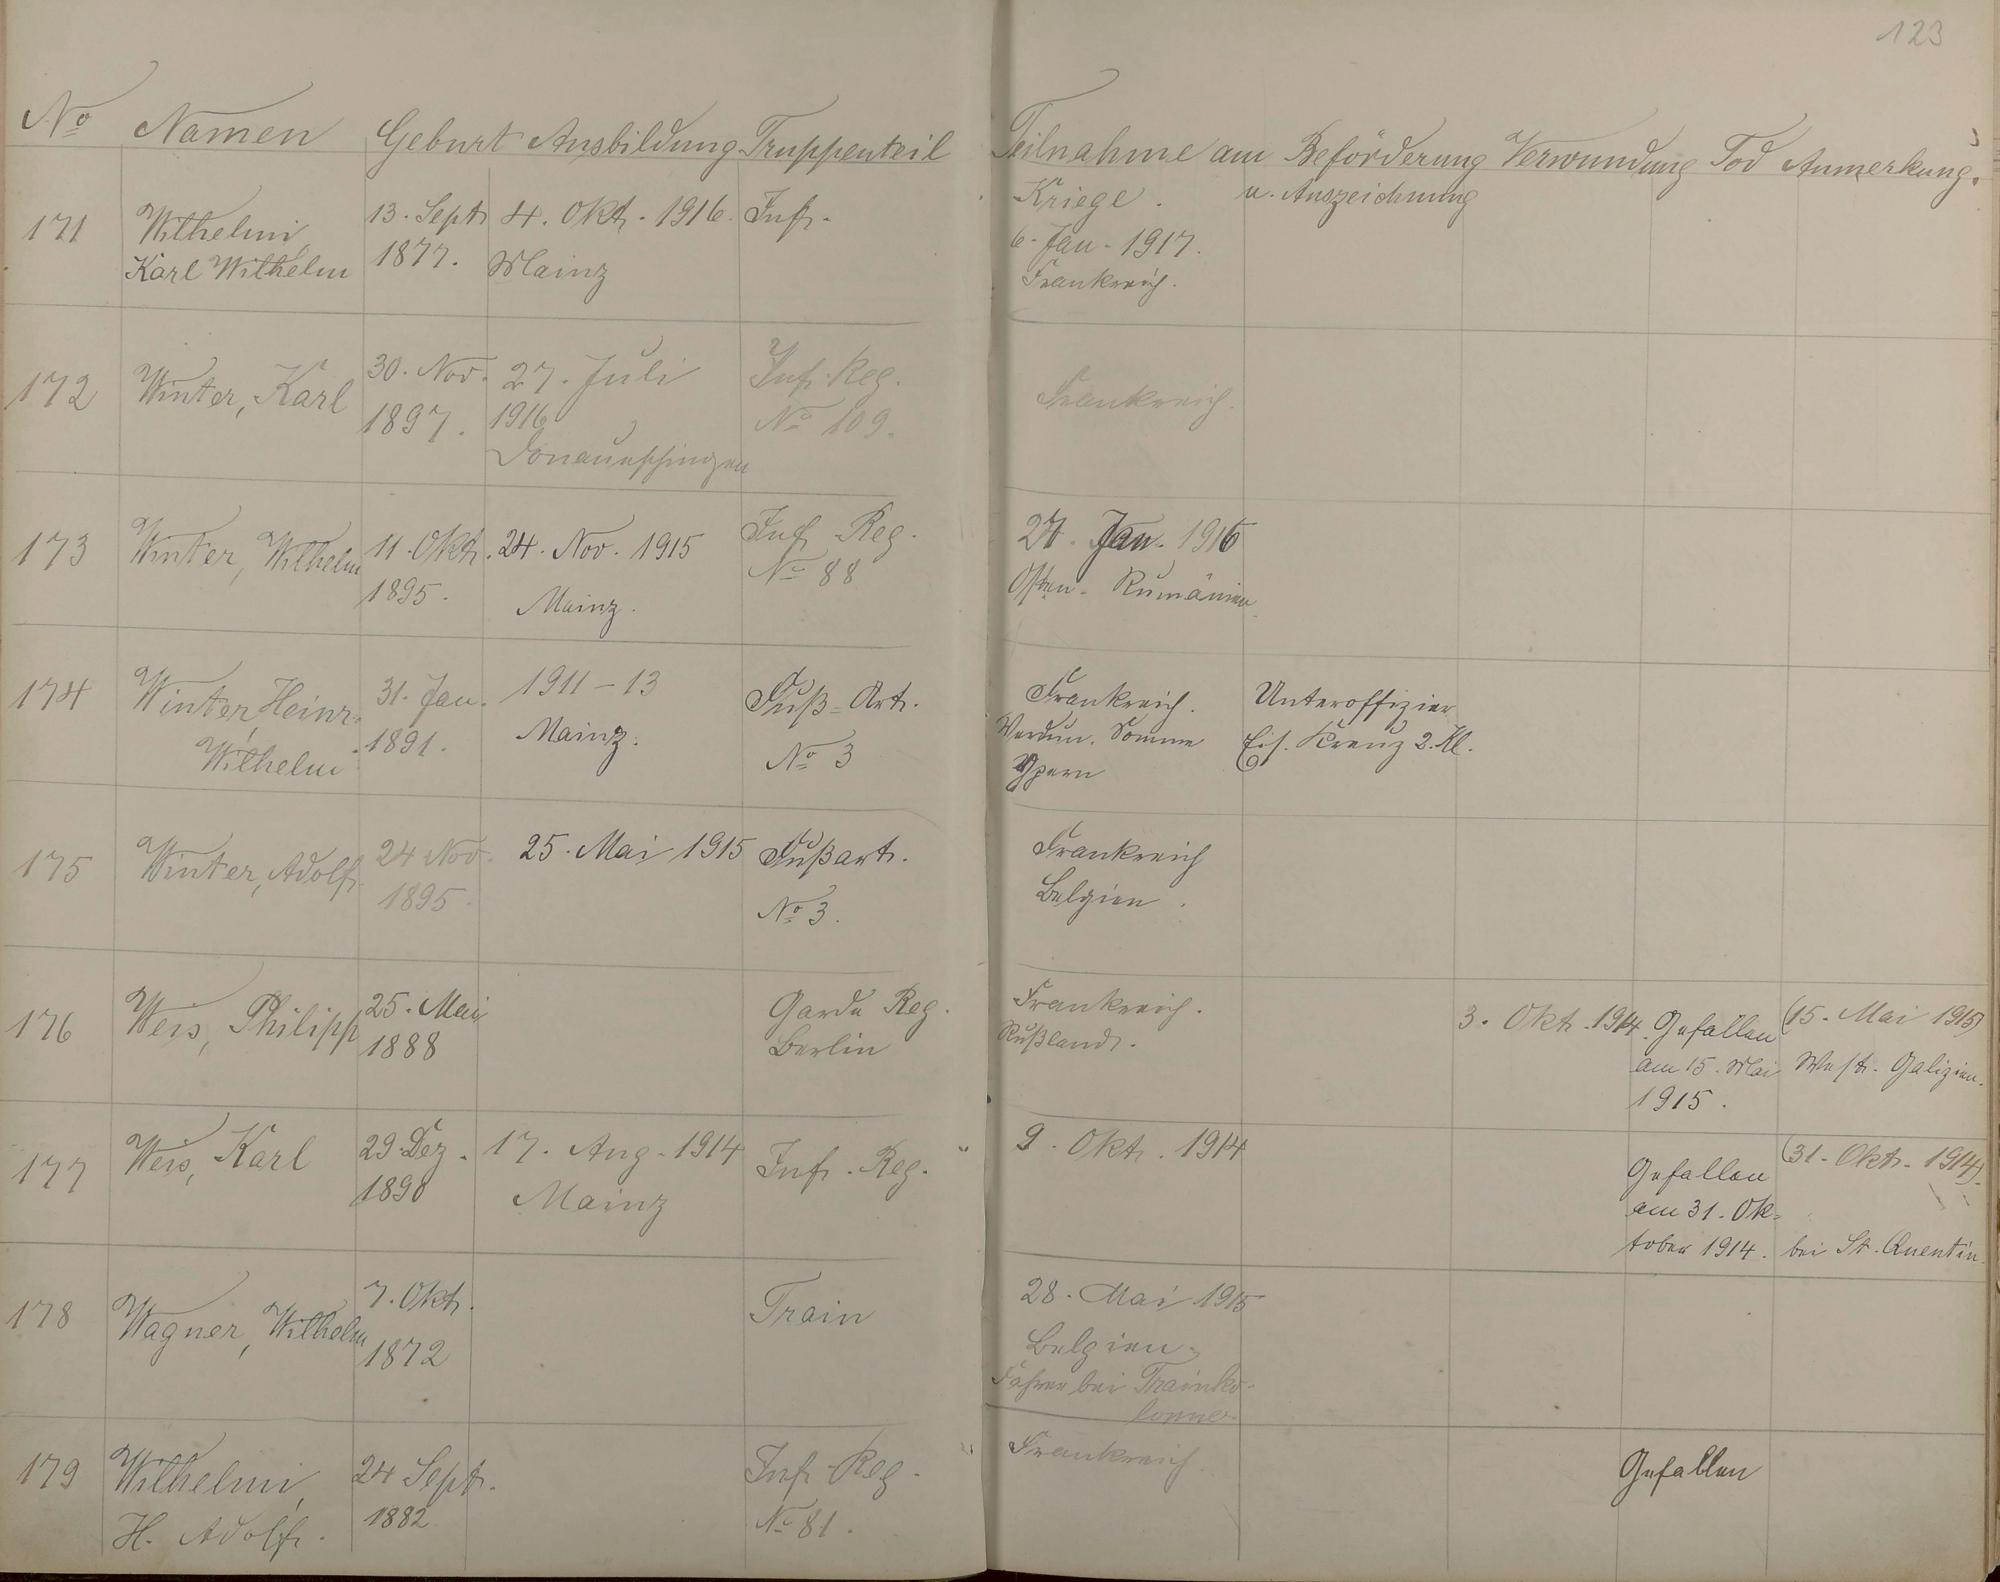 123
No Namen Geburt Ausbildung Truppenteil Teilnahme am Beförderung Verwundung Tod Anmerkung.
Kriege. u. Auszeichnung
171 Wilhelmi, 13. Sept 4. Okt. 1916. Inft.
Karl Wilhelm 1877. Mainz
6. Jan. 1917.
Frankreich.
172 Winter, Karl 30. Nov. 27. Juli Inf. Reg. Frankreich.
1897. 1916 No 109.
Donaueschingen
173 Winter, Wilhelm 11. Okt. 24. Nov. 1915 Inf. Reg. 27. Jan. 1916
1895. Mainz. No 88 Osten. Rumänien
174 Winter, Heinr. 31. Jan. 1911-13 Fuß-Art. Frankreich. Unteroffizier
Wilhelm 1891. Mainz. No 3 Verdun. Somme Eis. Kreuz 2. Kl.
Ypern
175 Winter, Adolf 24 Nov. 25. Mai 1915 Fußart. Frankreich
1895. No 3. Belgien.
176 Weis, Philipp 25. Mai Garde Reg. Frankreich. 3. Okt. 1914. Gefallen (15. Mai 1915)
1888 Berlin Rußland. am 15. Mai West. Galizien.
1915.
177 Weis, Karl 29. Dez. 17. Aug. 1914 Inf. Reg. 9. Okt. 1914 Gefallen (31. Okt. 1914).
1890 Mainz am 31. Ok=
tober 1914. bei St. Quentin.
178 Wagner, Wilhelm 7. Okt. Train 28. Mai 1915
1872 Belgien.
Fahrer bei Trainko-
lonne
179 Wilhelmi, 24 Sept. Inf. Reg. Frankreich. Gefallen
H. Adolf. 1882 No 81.